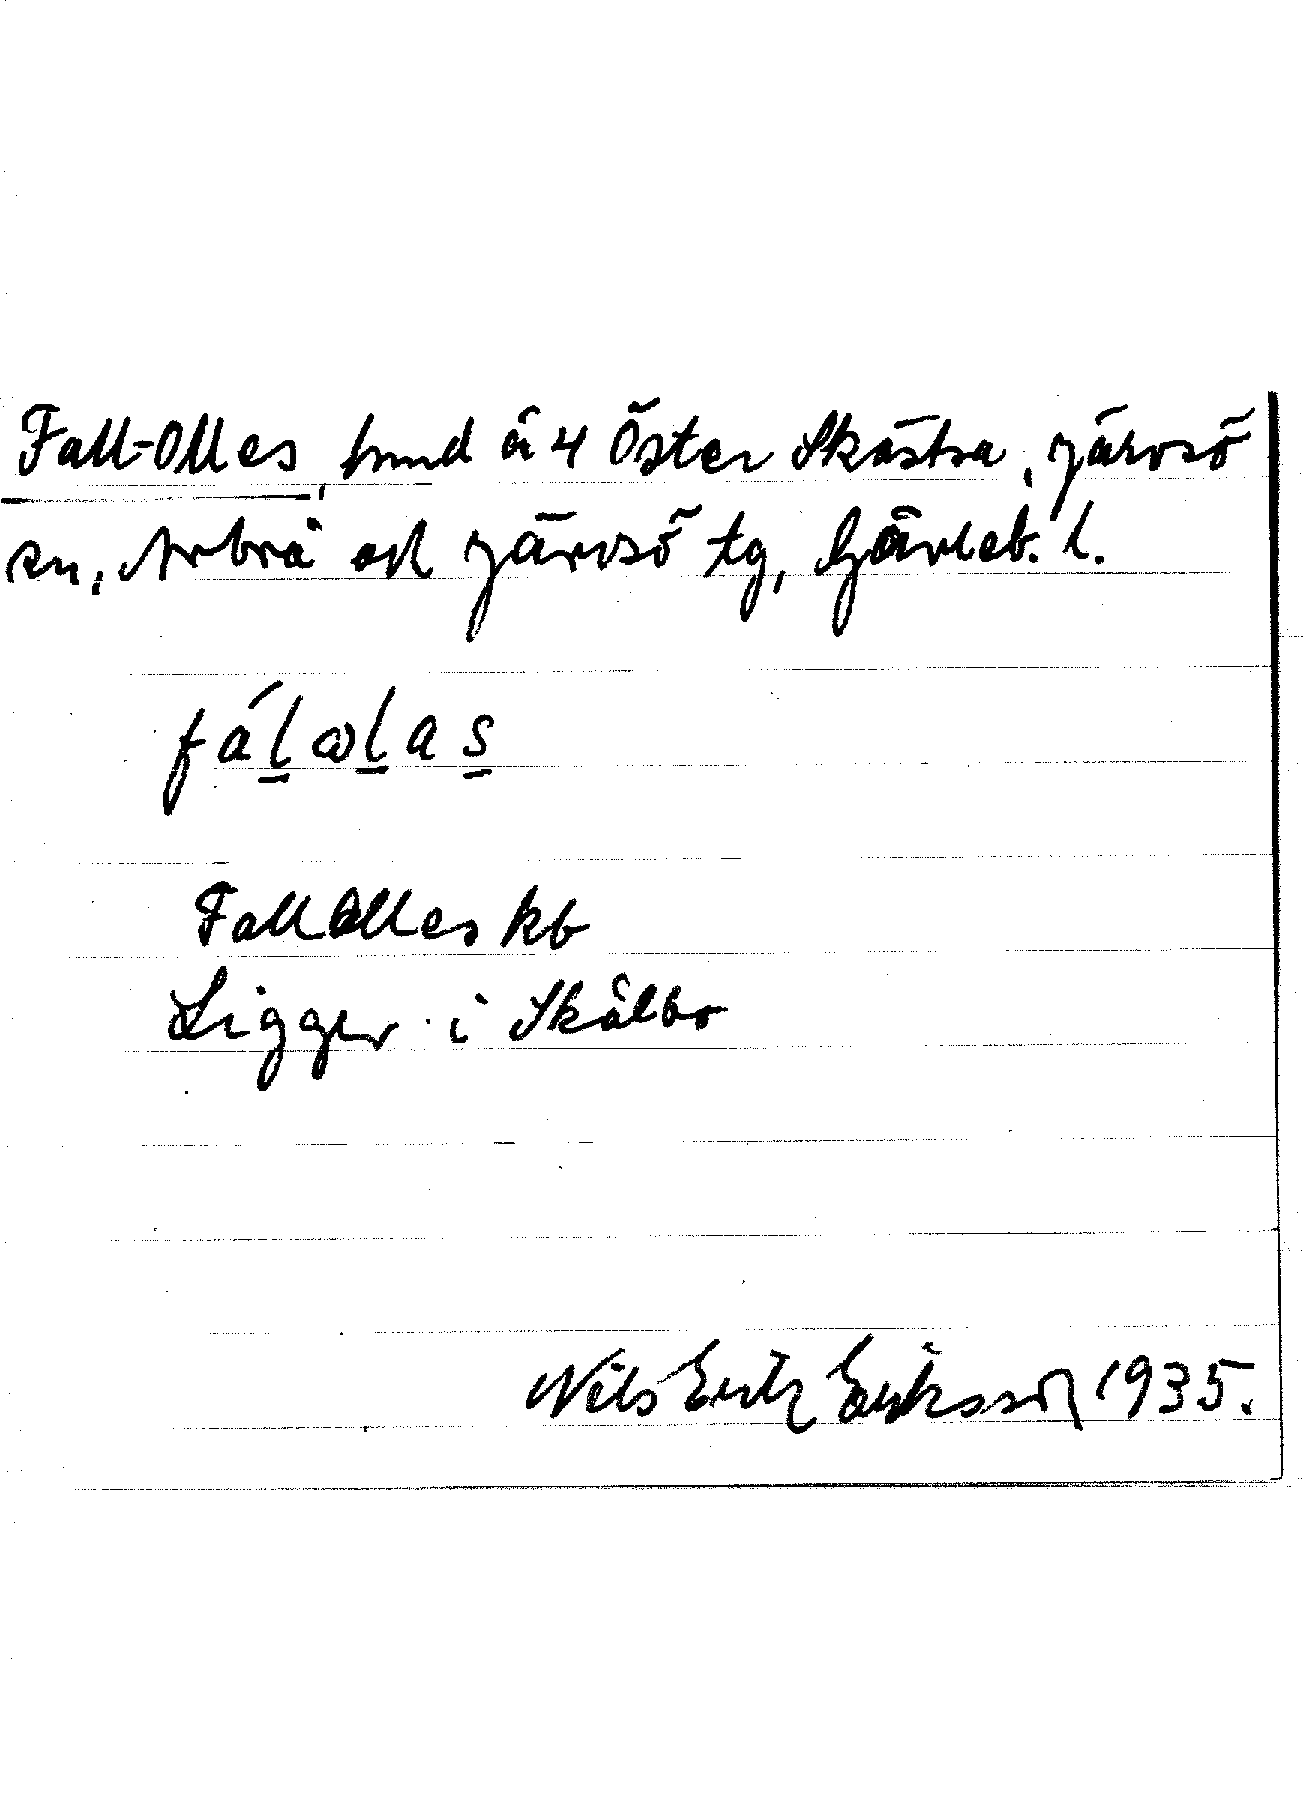 Fall-Olles, hmd å 4 Öster Skästra, Järvsö
sn, Arbrå och Järvsö tg, Gävleb. l.
fálɷlas
Fall Olles kb
Ligger i Skålbo
Nils Erik Eriksson 1935.